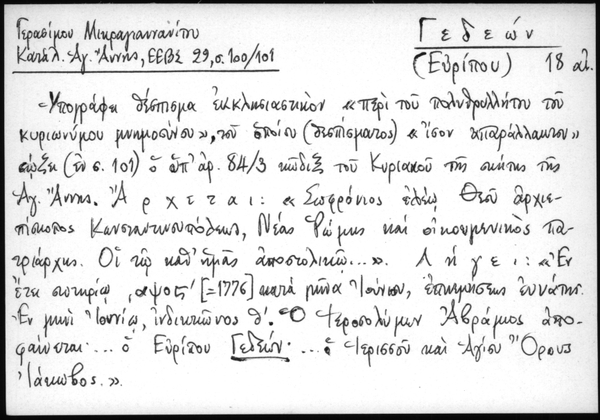 Γερασίμου Μικραγιαννανίτου
Κατάλ. Ἁγ. Ἄννης, ΕΕΒΣ 29, σ. 100/101
Γεδεών
(Εὐρίπου) 18 αἰ.
Ὑπογράφει θέσπισμα ἐκκλησιαστικὸν «περὶ τοῦ πολυθρυλλήτου τοῦ
κυριωνύμου μνημοσύνου», τοῦ ὁποίου (θεσπίσματος) «ἴσον ἀπαράλλακτον»
σῴζει (ἐν σ. 101) ὁ ὑπ' ἀρ. 84/3 κῶδιξ τοῦ Κυριακοῦ τῆς σκήτης τῆς
Ἁγ. Ἄννης. Ἄρχεται: «Σωφρόνιος ἐλέῳ Θεοῦ ἀρχιε-
πίσκοπος Κωνσταντινουπόλεως, Νέας Ῥώμης καὶ οἰκουμενικὸς πα-
τριάρχης. Οἱ τῷ καθ' ἡμᾶς ἀποστολικῷ...». Λήγει: «Ἐν
ἔτει σωτηρίῳ ͵αψοϛ′ [=1776] κατὰ μῆνα Ἰούνιον, ἐπινεμήσεως ἐννάτης.
Ἐν μηνὶ Ἰουνίῳ, ἰνδικτιῶνος θ′. Ὁ Ἱεροσολύμων Ἀβράμιος ἀπο-
φαίνεται· ... ὁ Εὐρίπου Γεδεών· ... ὁ Ἱερισσοῦ καὶ Ἁγίου Ὄρους
Ἰάκωβος.».